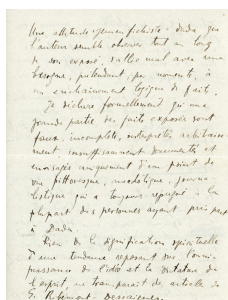 Une attitude "jemenfichiste-dada, que
l'auteur semble observer tout au long
de son exposé, s'allie mal avec une
besogne, prétendant, par moments, à
un enchaînement logique de faits.
Je déclare formellement qu'une
grande partie des faits exposés sont
faux, incomplets, interprétés arbitraire-
ment, insuffisamment documentés et
envisagés uniquement d'un point de
vue pittoresque, anecdotique, journa-
listique qui a toujours répugné à la
plupart des personnes ayant pris part
à Dada.
Rien de la signification spirituelle
d'une tendance reposant sur l'omni-
puissance de l'idée et la dictature de
l'esprit, ne transparait de l'article de
G. Ribemont-Dessaignes